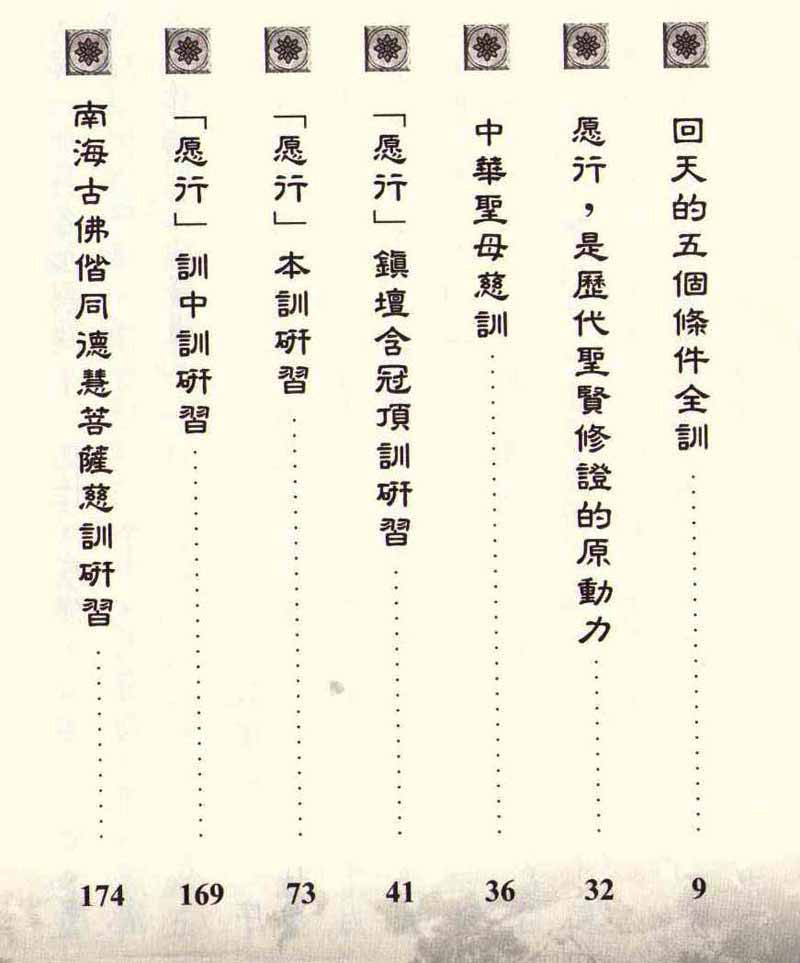 回天的五個條件全訓 9
愿行，是歷代聖賢修證的原動力 32
中華聖母慈訓 36
「愿行」鎮壇含冠頂訓研習 41
「愿行」本訓研習 73
「愿行」訓中訓研習 169
南海古佛偕同德慧菩薩慈訓研習 174